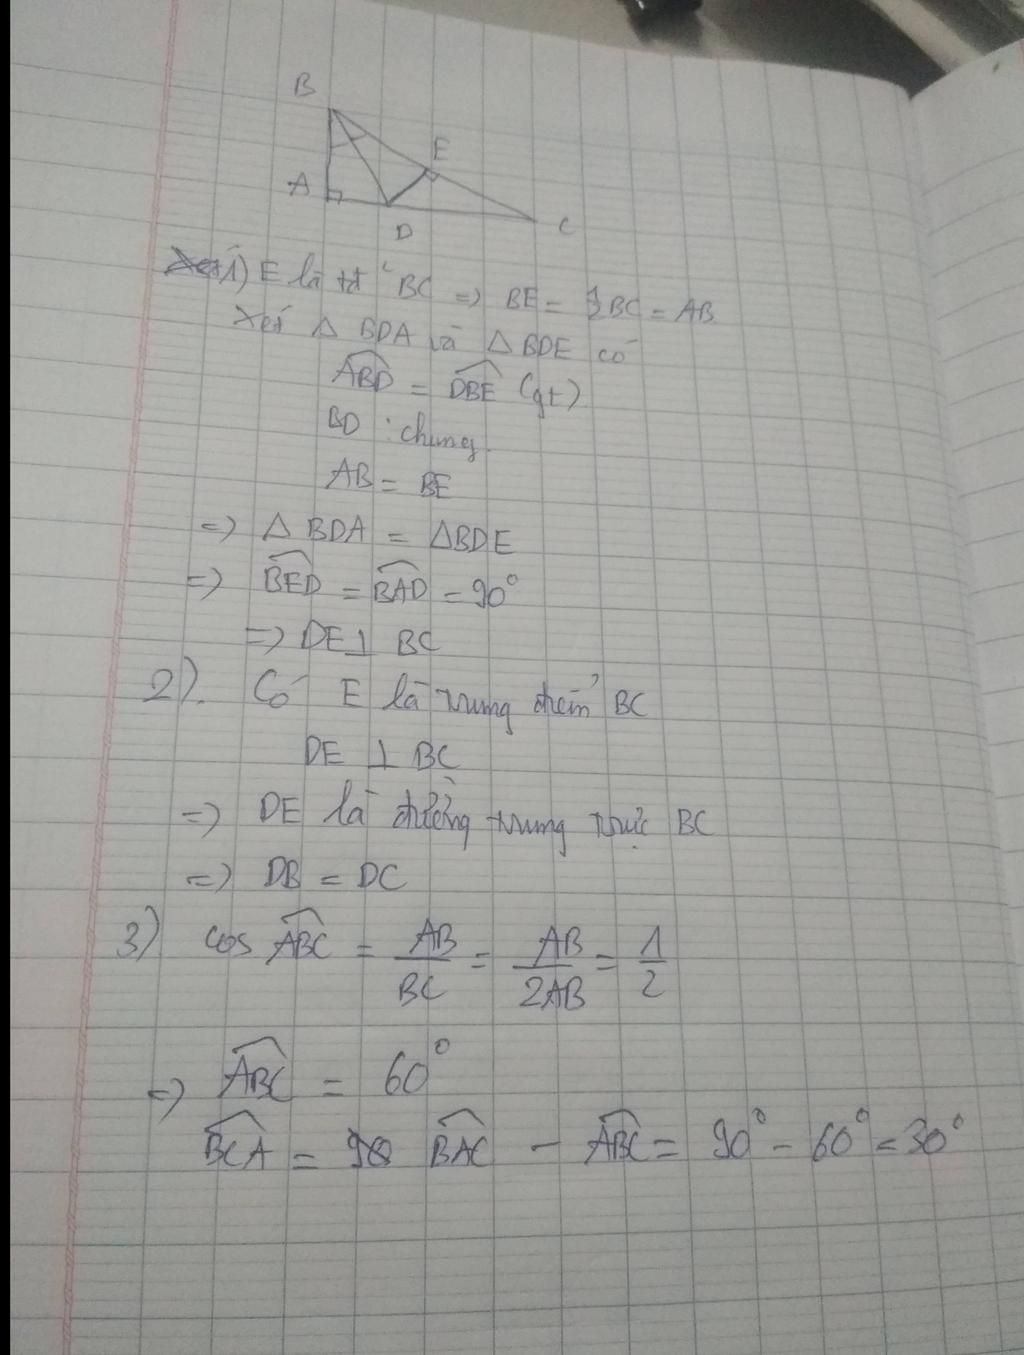 B
E
A
D
C
1) E là tđ BC => BE = 1/2 BC = AB
Xét Δ BDA và Δ BDE có
ABD = DBE (gt)
BD : chung.
AB = BE
=> Δ BDA = ΔBDE
=> BED = BAD = 90°
=> DE ⊥ BC
2). Có E là trung điểm BC
DE ⊥ BC
=> DE là đường trung trực BC
=> DB = DC
3) cos ABC = AB/BC = AB/2AB = 1/2
=> ABC = 60°
BCA = BAC - ABC = 90° - 60° = 30°